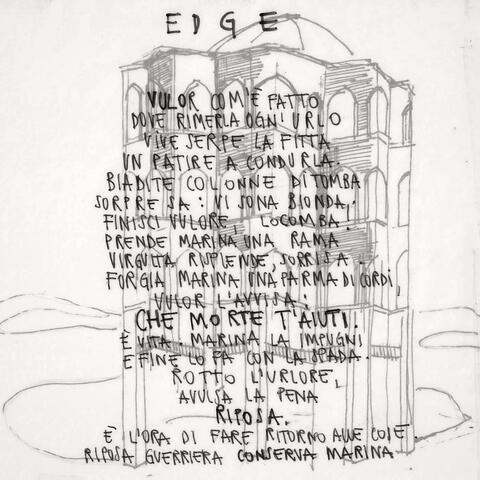 EDGE
VULOR COM'È FATTO
DOVE RIMERLA OGNI URLO
VIVE SERPE LA FITTA
UN PATIRE A CONDURLA.
BIADITE COLONNE DI TOMBA
SORPRESA: VI SONA BIONDA,
FINISCI VULORE, LOCOMBA.
PRENDE MARINA UNA RAMA
VIRGULTA RISPLENDE, SORRISA.
FORGIA MARINA UNA PARMA DI CORDI,
VULOR L'AVVISA:
CHE MORTE T'AIUTI.
È VITA MARINA LA IMPUGNI
E FINE LO FA CON LA SPADA.
ROTTO L'URLORE,
AVULSA LA PENA
RIPOSA.
È L'ORA DI FARE RITORNO ALLE COSE.
RIPOSA GUERRIERA CONSERVA MARINA